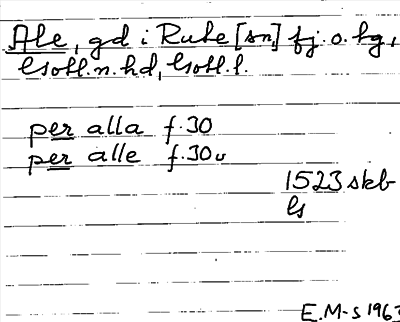 Ale, gd i Rute [sn] fj. o. hg,
Gotl. n. hd, Gotl. l.
per alla f. 30
per alle f. 30v
1523 skb
ls
E. M-s 1963